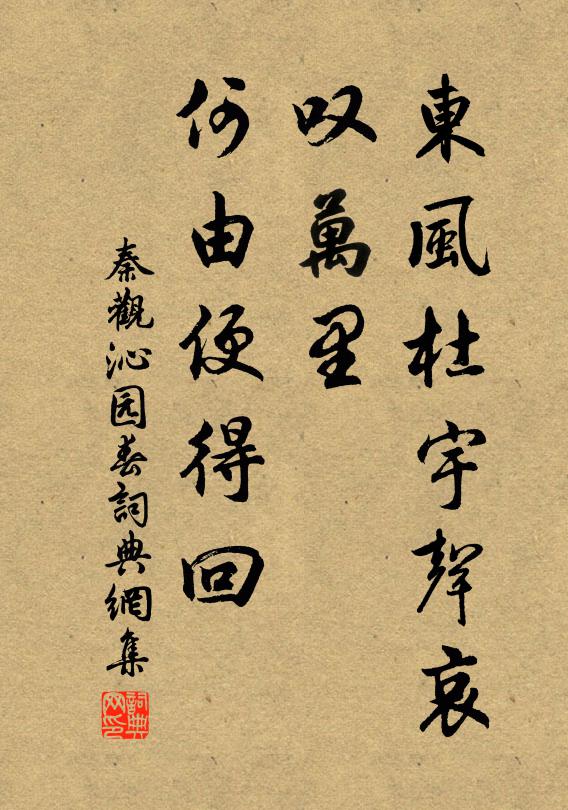 東風杜宇聲哀
叹萬里
何由便得回
秦觀沁园春詞典網集
詞典网印